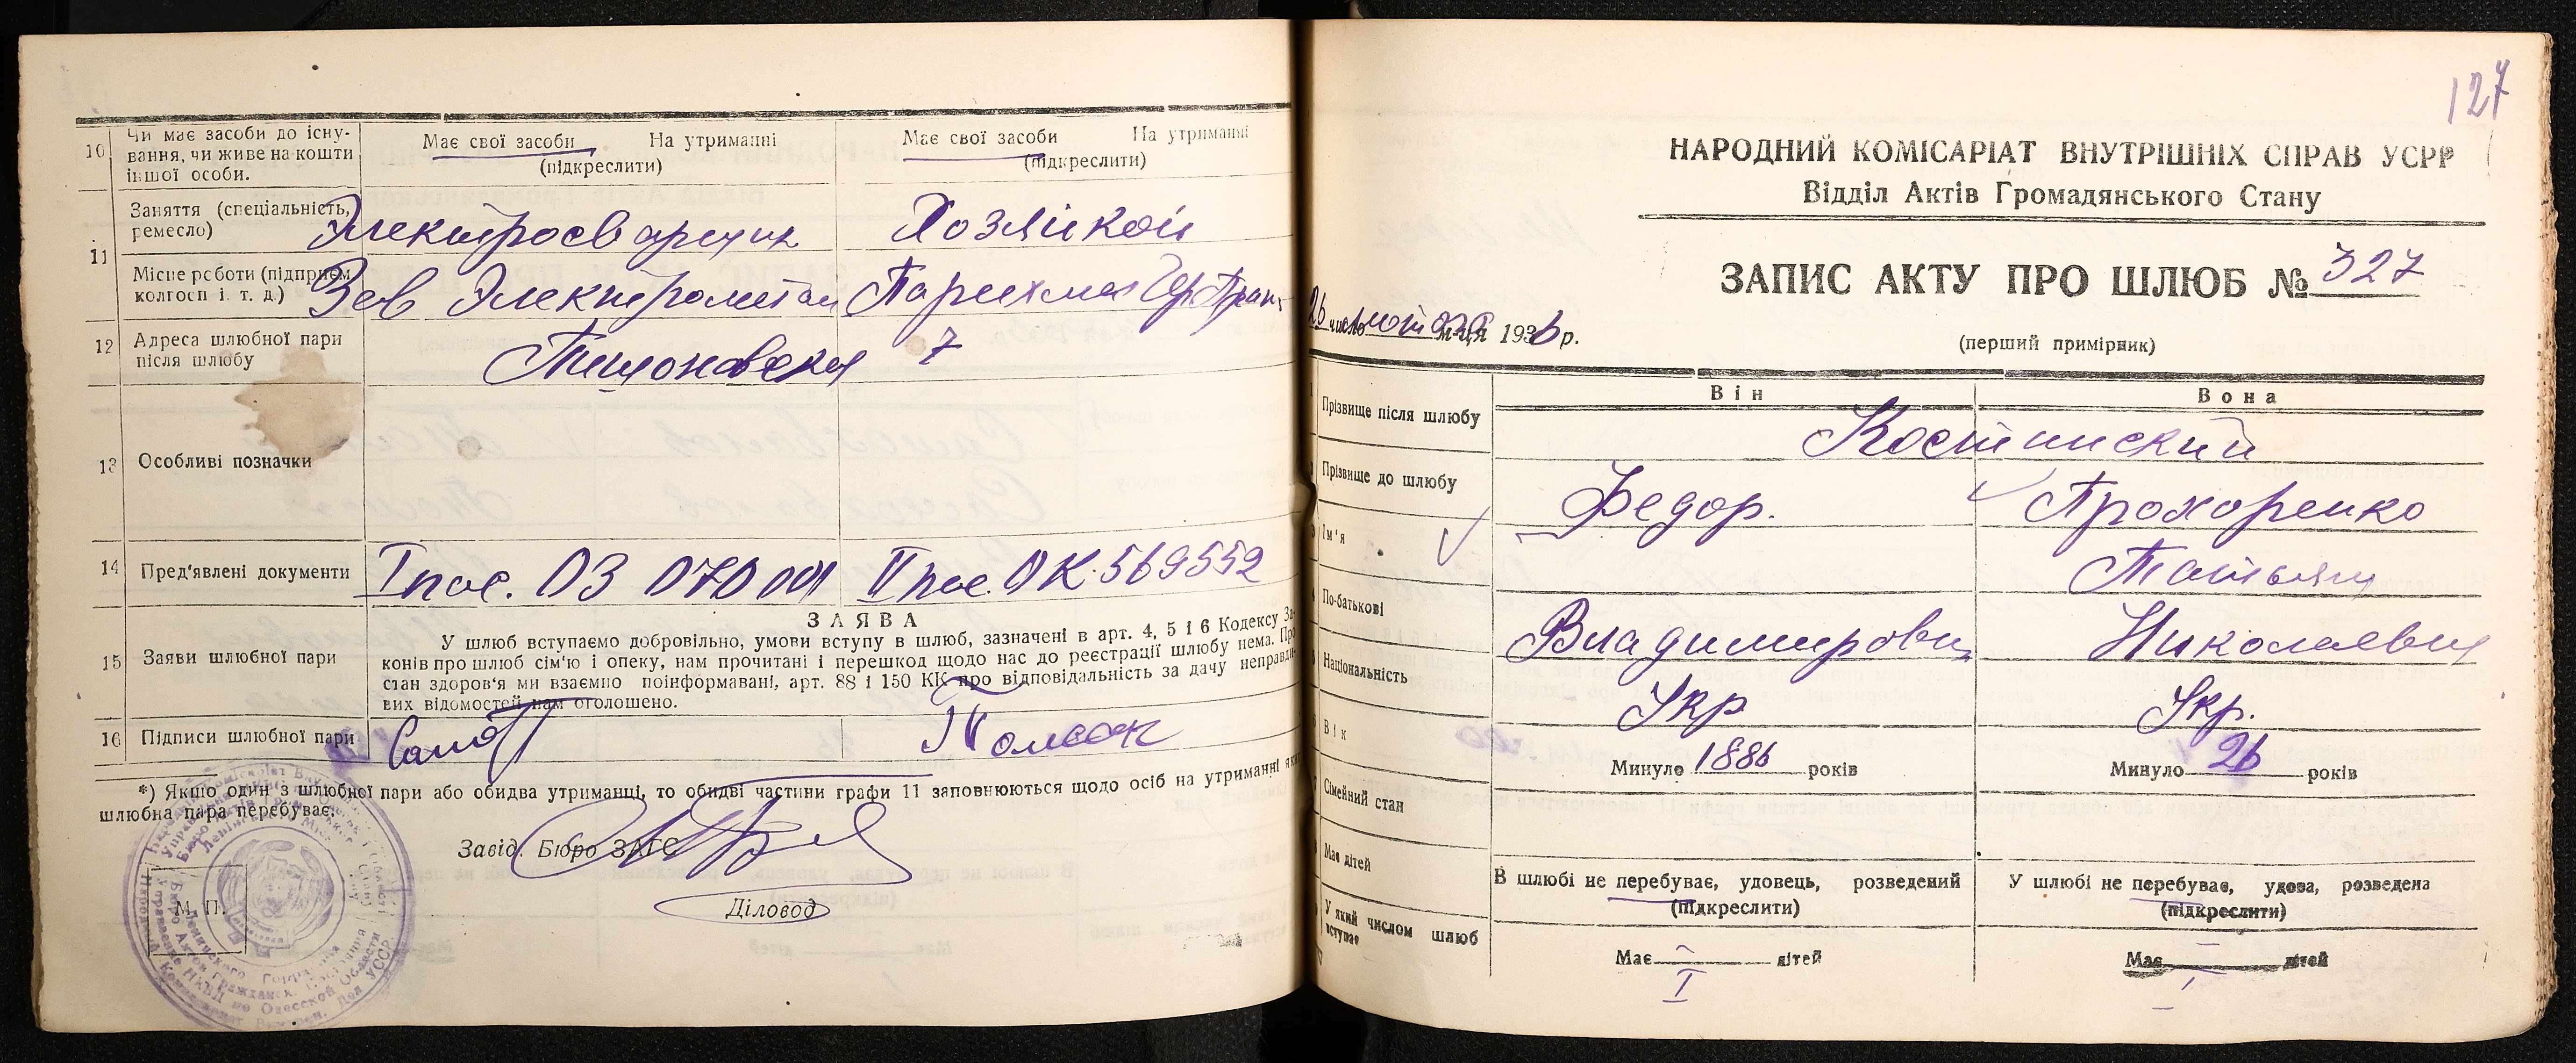 10 Чи має засоби до існу-
вання, чи живе на кошти
іншої особи.
Має свої засоби На утриманні
(підкреслити)
Має свої засоби На утриманні
(підкреслити)
11 Заняття (спеціальність,
ремесло)
Электросварщик
Хозяйкой
Місце роботи (підприєм
колгосп і. т. д.)
Зав
12 Адреса шлюбної пари
після шлюбу
7
13 Особливі позначки
14 Пред'явлені документи
I пас. ОЗ 070001
II пас. ОК 569552
15 Заяви шлюбної пари
ЗАЯВА
У шлюб вступаємо добровільно, умови вступу в шлюб, зазначені в арт. 4, 5 і 6 Кодексу За-
конів про шлюб сім'ю і опеку, нам прочитані і перешкод щодо нас до реєстрації шлюбу нема. Про
стан здоров'я ми взаємно поінформавані, арт. 88 і 150 КК про відповідальність за дачу неправди-
вих відомостей нам оголошено.
16 Підписи шлюбної пари
*) Якщо один з шлюбної пари або обидва утриманці, то обидві частини графи 11 заповнюються щодо осіб на утриманні яких
шлюбна пара перебуває.
Завід. Бюро ЗАГС
Діловод
М. П.
127
НАРОДНИЙ КОМІСАРІАТ ВНУТРІШНІХ СПРАВ УСРР
Відділ Актів Громадянського Стану
ЗАПИС АКТУ ПРО ШЛЮБ № 327
26 число м-ця 1936 р.
(перший примірник)
Він
Вона
Прізвище після шлюбу
Костинский
Прізвище до шлюбу
Федор.
Прохоренко
Ім'я
Татьяна
По-батькові
Владимирович
Николаевна
Національність
Укр
Укр.
Вік
Минуло 1886 років
Минуло 26 років
Сімейний стан
В шлюбі не перебуває, удовець, розведений
(підкреслити)
У шлюбі не перебуває, удова, розведена
(підкреслити)
Має дітей
Має дітей
Має дітей
У який числом шлюб
вступає
I